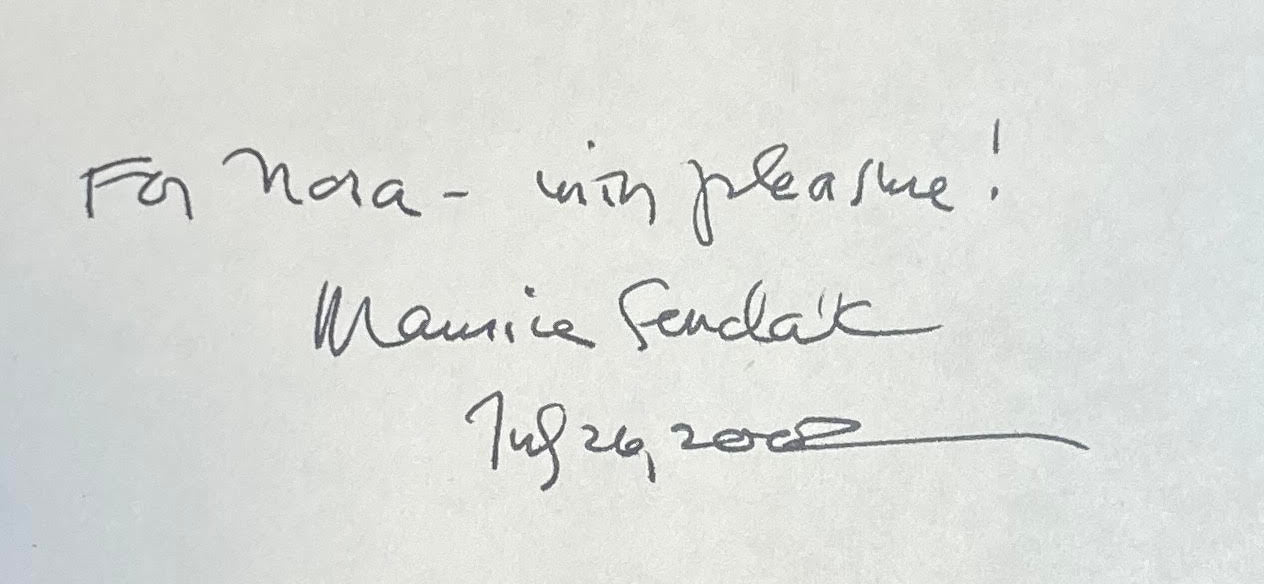 For Nora - with pleasure!
Maurice Sendak
July 26, 2002